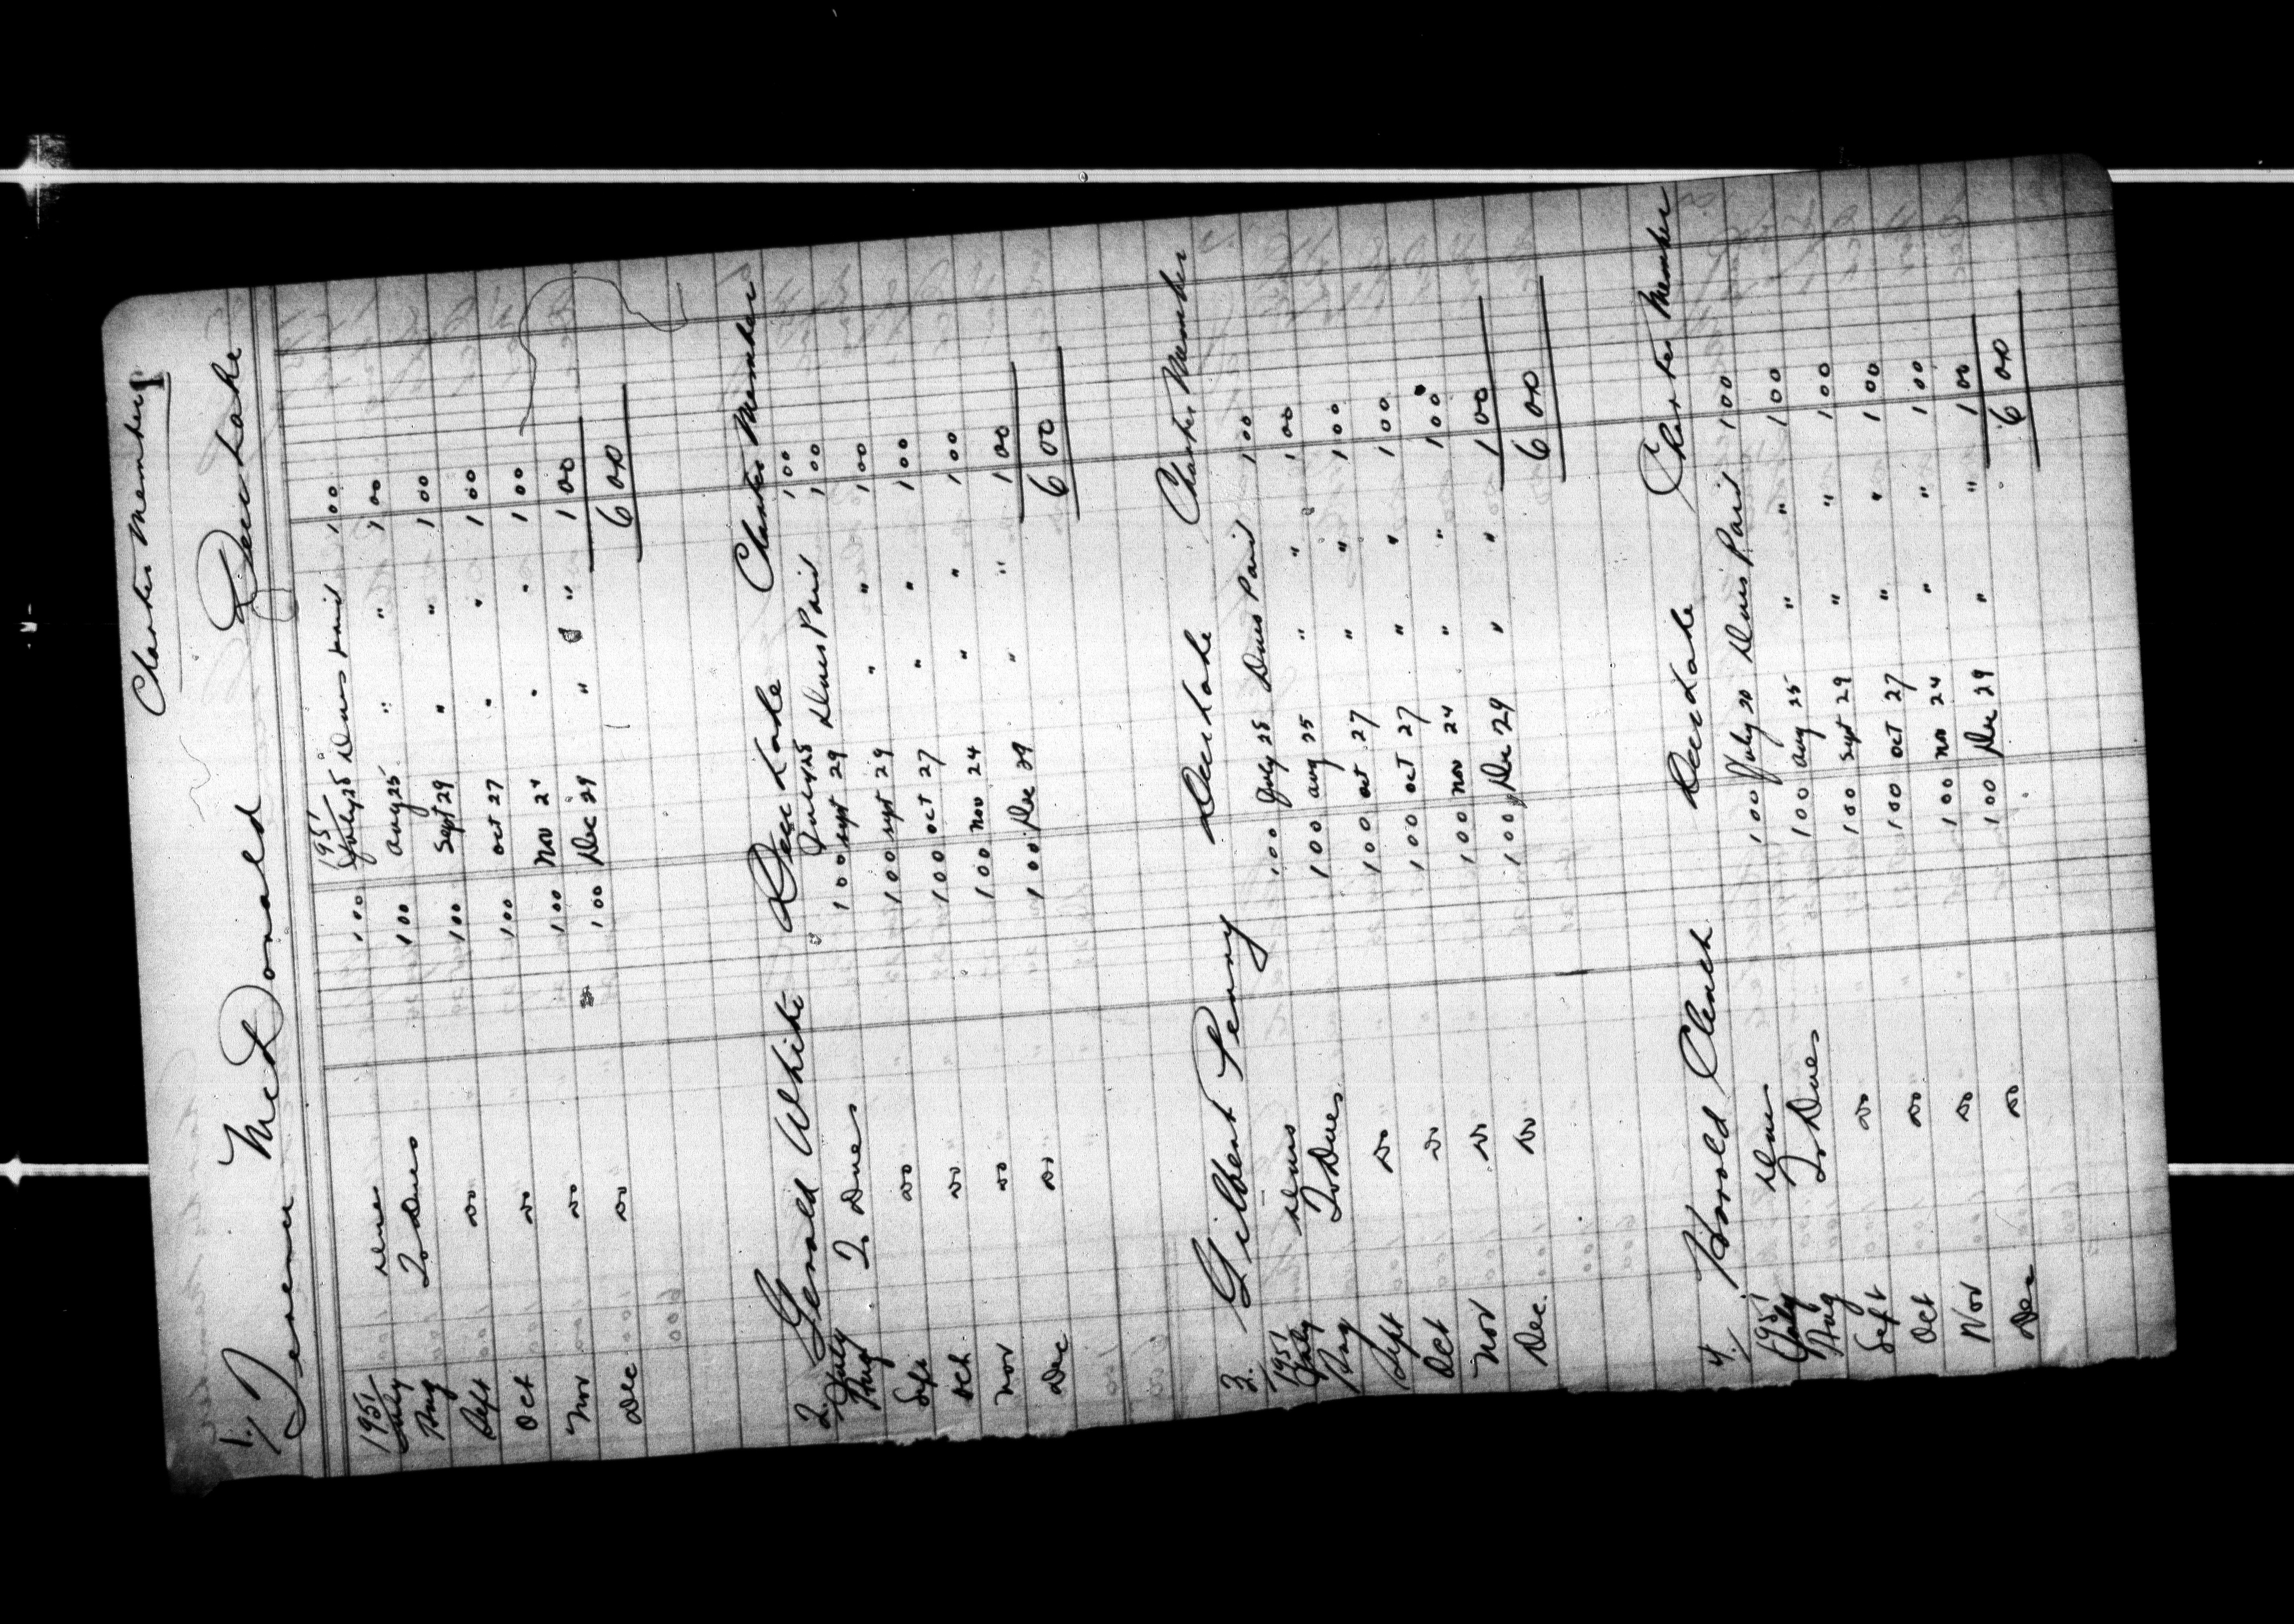 Charter Members
1. Terence McDonald Deer Lake
1951 1951
July Dues 1 00 July 25 Dues Paid 1 00
Aug To Dues 1 00 Aug 25 " " 1 00
Sept " 1 00 Sept 29 " " 1 00
Oct " 1 00 Oct 27 " " 1 00
Nov " 1 00 Nov 24 " " 1 00
Dec " 1 00 Dec 29 " " 1 00
6 00
2. Gerald White Deer Lake Charter Member
July July 25 1 00
Aug To Dues 1 00 Sept 29 Dues Paid 1 00
Sept " 1 00 Sept 29 " " 1 00
Oct " 1 00 Oct 27 " " 1 00
Nov " 1 00 Nov 24 " " 1 00
Dec " 1 00 Dec 29 " " 1 00
6 00
3. Gilbert Penny Deer Lake Charter Member
1951
July Dues 1 00 July 25 Dues Paid 1 00
Aug To Dues 1 00 Aug 25 " " 1 00
Sept " 1 00 Oct 27 " " 1 00
Oct " 1 00 Oct 27 " " 1 00
Nov " 1 00 Nov 24 " " 1 00
Dec. " 1 00 Dec 29 " " 1 00
6 00
4. Harold Clench Deer Lake Charter Member
1951
July Dues 1 00 July 20 Dues Paid 1 00
Aug To Dues 1 00 Aug 25 " " 1 00
Sept " 1 00 Sept 29 " " 1 00
Oct " 1 00 Oct 27 " " 1 00
Nov " 1 00 Nov 24 " " 1 00
Dec " 1 00 Dec 29 " " 1 00
6 00